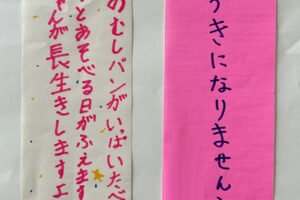 うきになりません
のむしパンがいっぱいたべ
とあそべる日がふえます
ゃんが長生きします